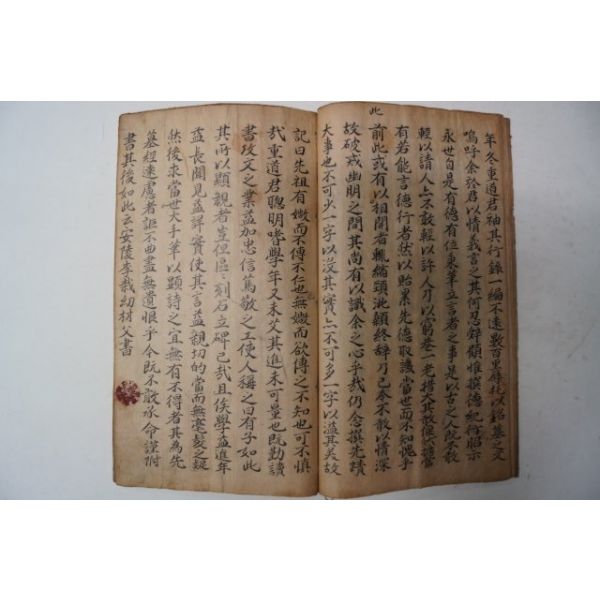 年冬重道君袖其行錄一編不遠數百里辱托以銘墓之文
嗚呼余於君以情義言之其何忍辭顧惟撰德紀行昭示
永世自是有德有位秉筆立言者之事是以古之人旣不敢
輕以請人亦不敢輕以許人矧以窮巷一老措大其敢任當
有若能言德行者然以貽累先德取譏當世而不知愧乎
前此或有以相聞者輒縮頸泚顙終辭乃已今不敢以情深
故破戒幽明之間其尚有以識余之心乎哉仍念撰先蹟
大事也不可少一字以沒其實亦不可多一字以溢其美故
此
記曰先祖有媺而不傳不仁也無媺而欲傳之不知也可不慎
哉重道君聰明嗜學年又未艾其進未可量也旣勤讀
書攻文之業益加忠信篤敬之工使人稱之曰有子如此
其所以顯親者豈但區刻石立碑已哉且俟學益進年
益長聞見益詳實使其言益親切的當而無毫髮之疑
然後求當世大手筆以題詩之宜無有不得者其為先
墓經遠慮者詎不西盡無遺恨乎今旣不敢承命謹附
書其後如此云安陵李栽幼材父書